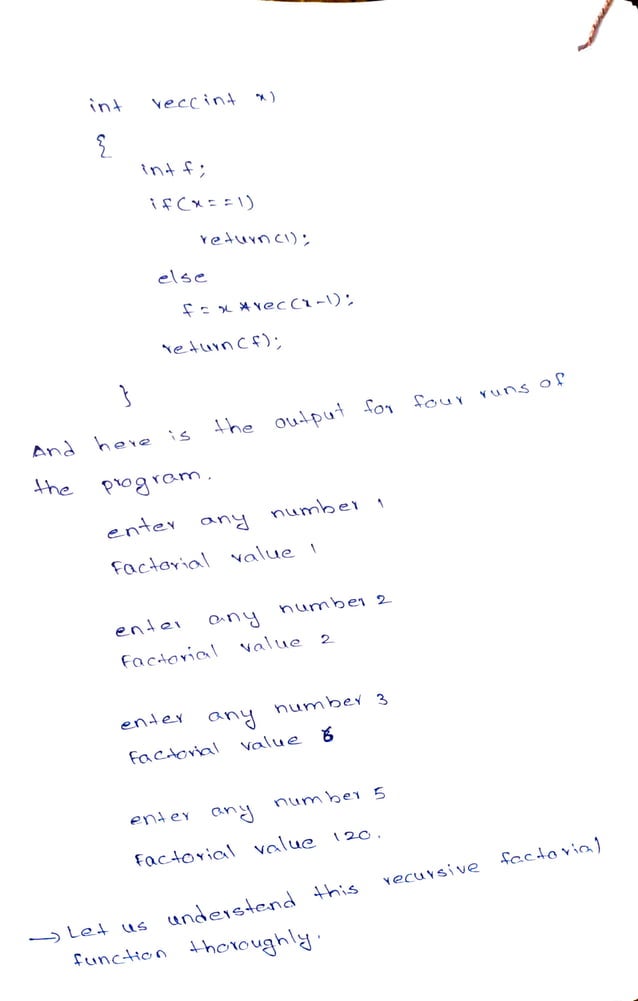 int rec(int x)
{
int f;
if(x==1)
return(1);
else
f=x*rec(x-1);
return(f);
}
And here is the output for four runs of
the program.
enter any number 1
Factorial value 1
enter any number 2
Factorial value 2
enter any number 3
Factorial value 6
enter any number 5
Factorial value 120.
→ Let us understand this recursive factorial
function thoroughly.